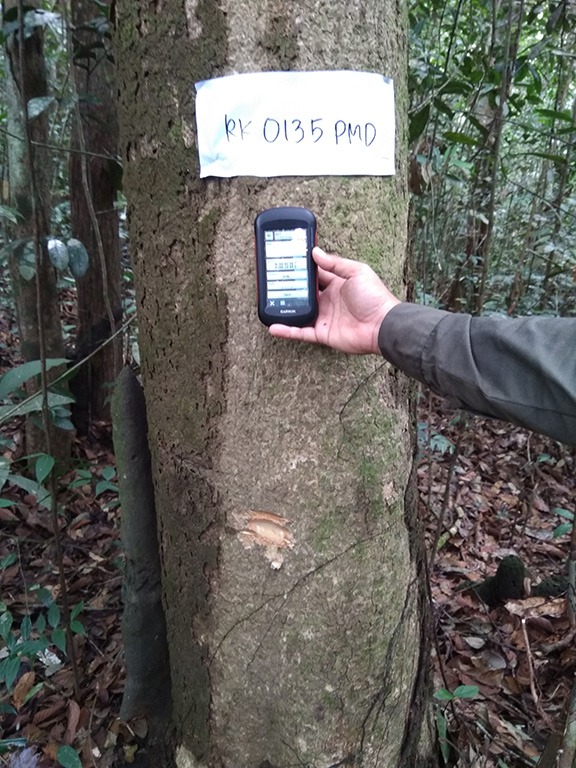 RK 0135 PMD
GARMIN